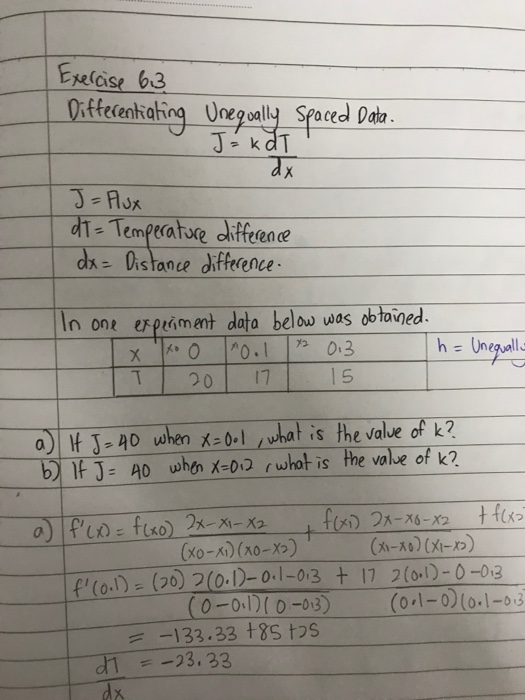 Exercise 6.3
Differentiating Unequally Spaced Data.
J = k dT
dx
J = Flux
dT = Temperature difference
dx = Distance difference.
In one experiment data below was obtained.
x x0 0 x1 0.1 x2 0.3 h = Unequally
T 20 17 15
a) If J = 40 when x = 0.1, what is the value of k?
b) If J = 40 when x = 0.2, what is the value of k?
a) f'(x) = f(x0) 2x-x1-x2 + f(x1) 2x-x0-x2 + f(x2
(x0-x1)(x0-x2) (x1-x0)(x1-x2)
f'(0.1) = (20) 2(0.1)-0.1-0.3 + 17 2(0.1)-0-0.3
(0-0.1)(0-0.3) (0.1-0)(0.1-0.3
= -133.33 +85 +25
dT = -23.33
dx